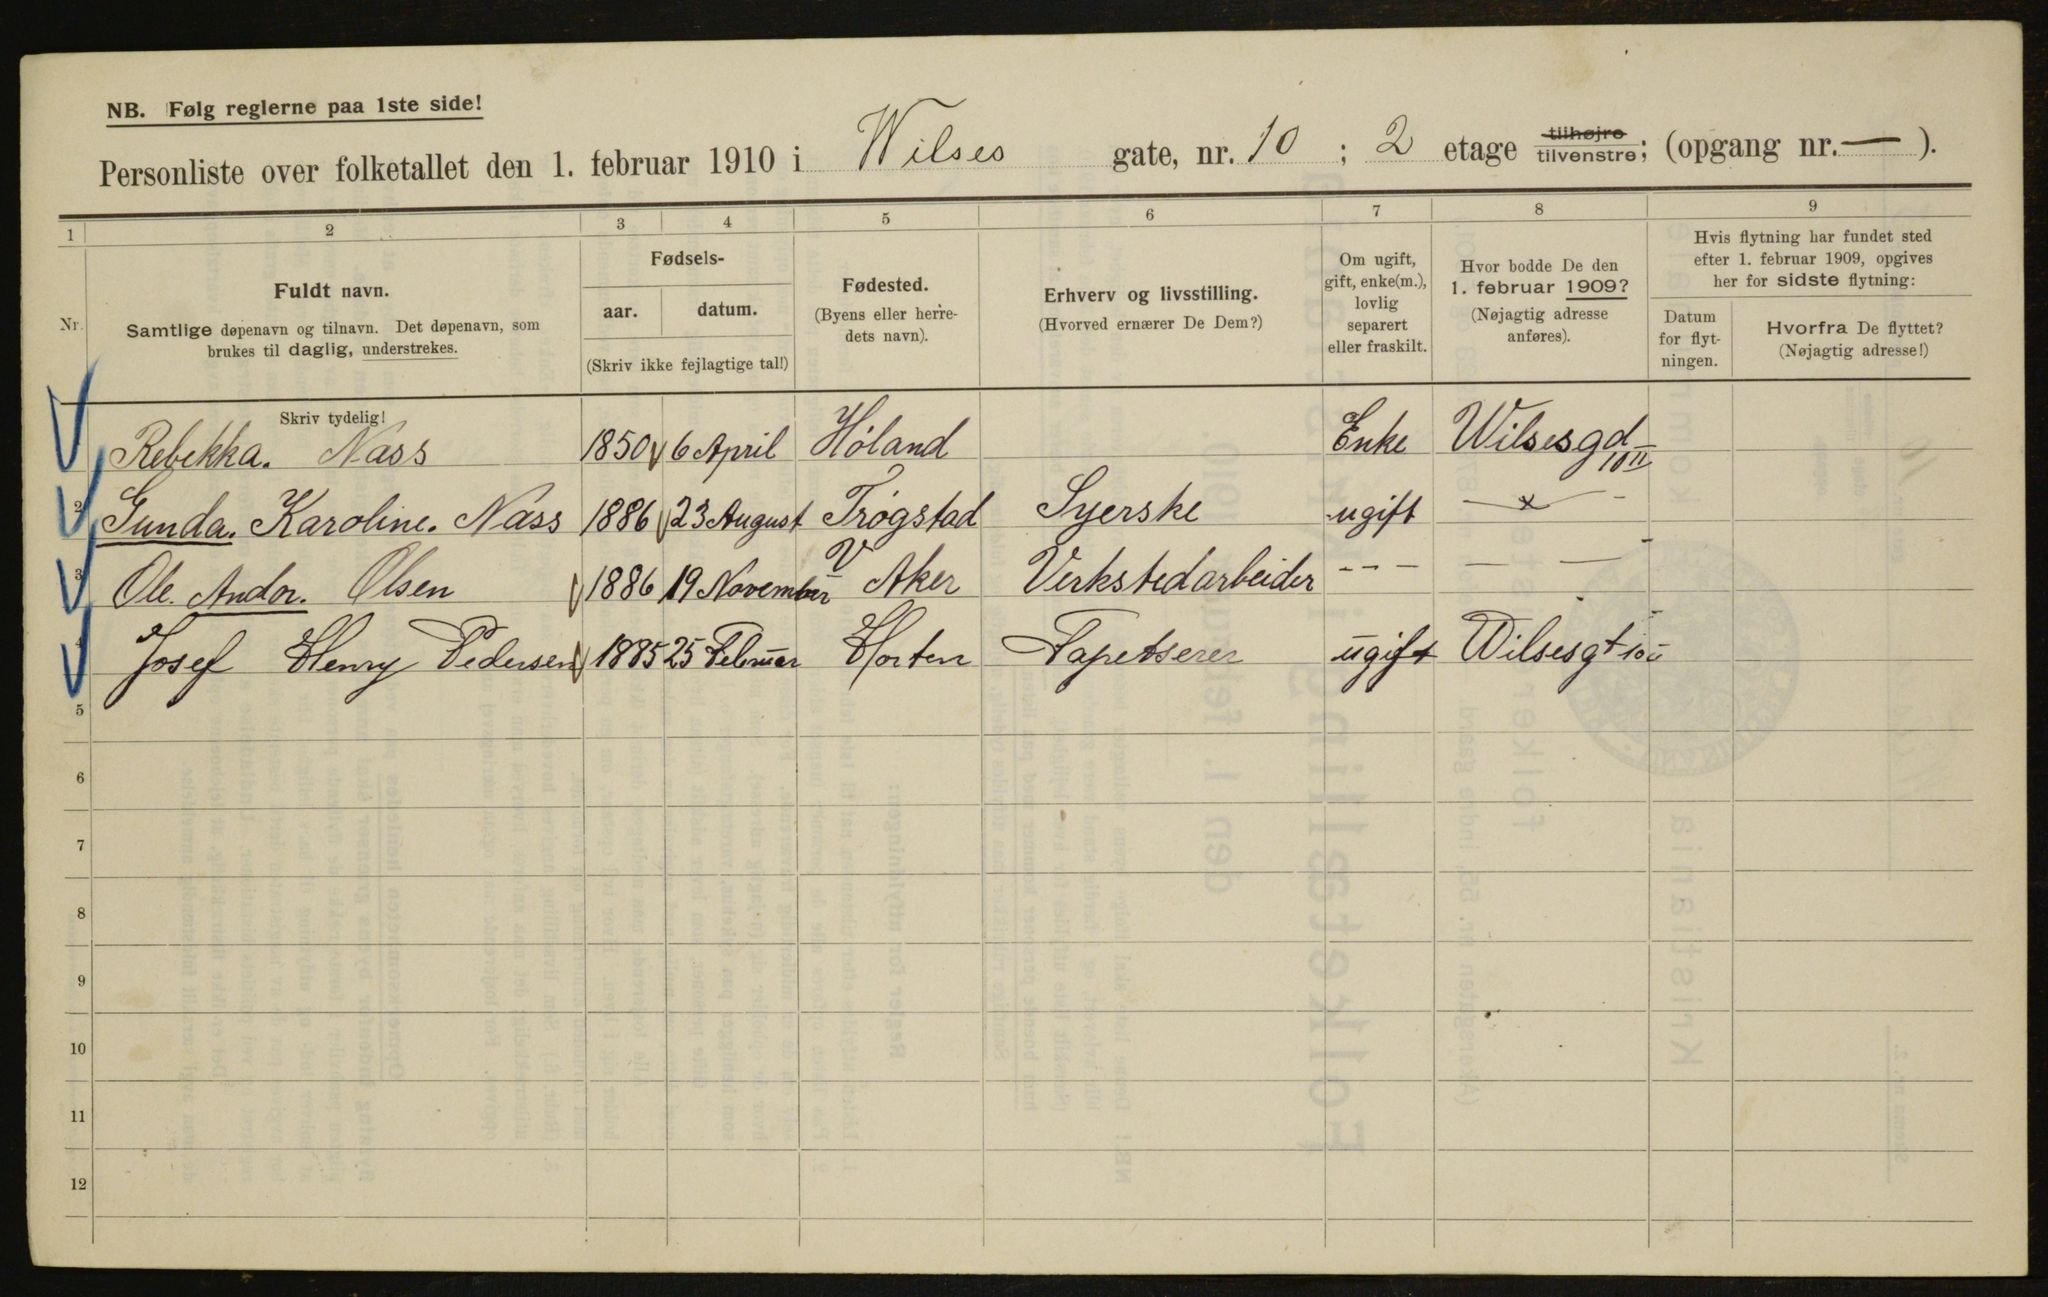 NB. Følg reglerne paa 1ste side!
Personliste over folketallet den 1. februar 1910 i Wilses gate, nr. 10 ; 2 etage tilhøjre tilvenstre; (opgang nr. — ).
1 2 3 4 5 6 7 8 9
Nr.
Fuldt navn.
Samtlige døpenavn og tilnavn. Det døpenavn, som
brukes til daglig, understrekes.
Fødsels-
aar. datum.
(Skriv ikke fejlagtige tal!)
Fødested.
(Byens eller herre-
dets navn).
Erhverv og livsstilling.
(Hvorved ernærer De Dem?)
Om ugift,
gift, enke(m.),
lovlig
separert
eller fraskilt.
Hvor bodde De den
1. februar 1909?
(Nøjagtig adresse
anføres).
Hvis flytning har fundet sted
efter 1. februar 1909, opgives
her for sidste flytning:
Datum
for flyt-
ningen.
Hvorfra De flyttet?
(Nøjagtig adresse!)
Skriv tydelig!
Rebekka. Nass 1850 6 April Høland Enke Wilsesgd 10 II
2 Gunda. Karoline. Nass 1886 23 August Trøgstad Syerske ugift — x —
3 Ole. Andor. Olsen 1886 19 November V Aker Verkstedarbeider - - - — —
4 Josef Henry Pedersen 1885 25 Februar Horten Tapetserer ugift Wilsesgt 10 II
5
6
7
8
9
10
11
12